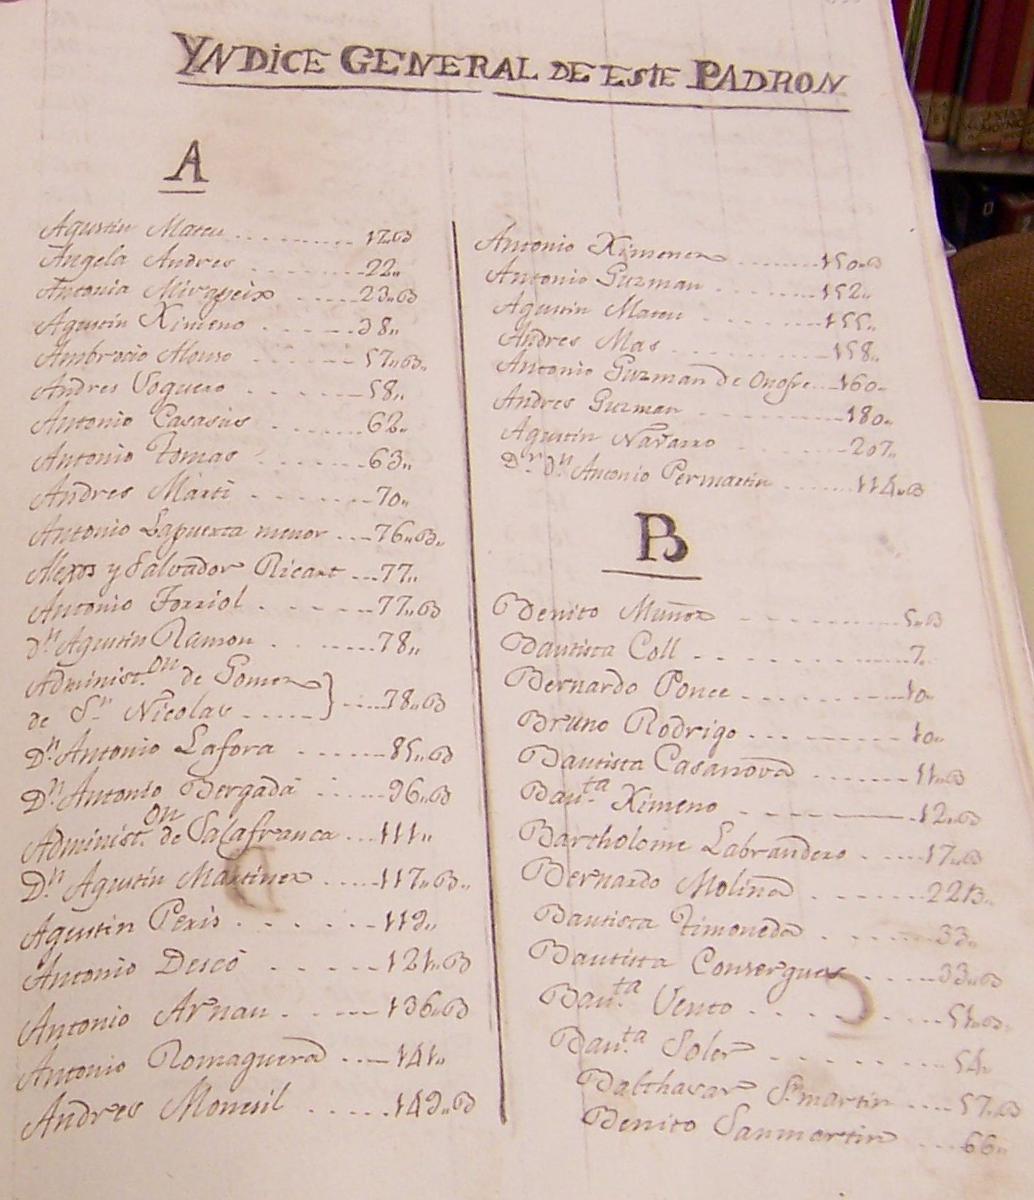 YNDICE GENERAL DE ESTE PADRON
A
Agustin Mateu ........... 17..B
Angela Andres ........ 22..
Antonia Mirapeix ..... 23..B
Agustin Ximeno ...... 38..
Ambrosio Alonso ....... 57..B..
Andres Voguero ...... 58..
Antonio Casasus ...... 62..
Antonio Tomas ....... 63..
Andres Marti ....... 70..
Antonio Lapuerta menor ... 76..B..
Alexos y Salvador Ricart ... 77..
Antonio Forriol ...... 77..B
Dn. Agustin Ramon ....... 78..
Administ.on de Gomez
de Sn. Nicolas ..... } .... 78..B
Dn. Antonio Lafora ...... 85..B
Dn. Antonio Bergada ..... 96..B
Administ.on de Salafranca ... 111..
Dn. Agustin Martinez ..... 117..B..
Agustin Peris ...... 119..
Antonio Desco ..... 121..B
Antonio Arnau ..... 136..B
Antonio Romaguera ... 141..
Andres Monsil ..... 149..B
Antonio Ximenez ........ 150..B
Antonio Guzman ....... 152..
Agustin Mateu ....... 155..
Andres Mas ......... 158..
Antonio Guzman de Onofre ... 160..
Andres Guzman ........ 180..
Agustin Navarro ...... 207..
Dr. Dn. Antonio Permartin ...... 114..B
B
Benito Muñoz ........ 5..B
Bautista Coll .......... 7..
Bernardo Ponce ........ 10..
Bruno Rodrigo ........ 10..
Bautista Casanova ....... 11..B
Bau.ta Ximeno ........ 12..B
Bartholome Labrandero ..... 17..B
Bernardo Molina ....... 22B..
Bautista Timoneda ...... 33..
Bautista Consergues .... 33..B
Bau.ta Vento ........ 51..B..
Bau.ta Soler ........ 54..
Balthasar Sn.martin .... 57..B
Benito Sanmartin .... 66..